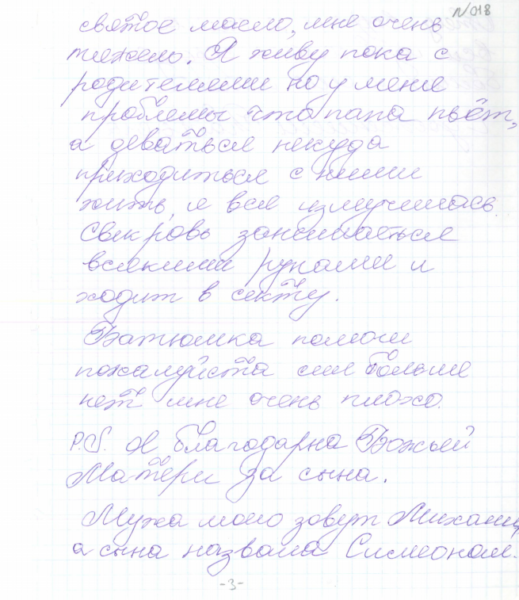 №018
святое масло, мне очень
тяжело. Я живу пока с
родителями но у меня
проблемы что папа пьёт,
а деваться некуда
приходиться с ними
жить, я вся измучилась.
Свекровь занимаеться
всякими рунами и
ходит в секту.
Батюшка помоги
пожалуйста сил больше
нет мне очень плохо.
P.S. Я благодарна Божьей
Матери за сына.
Мужа моего зовут Михаил,
а сына назвала Симеоном.
-3-